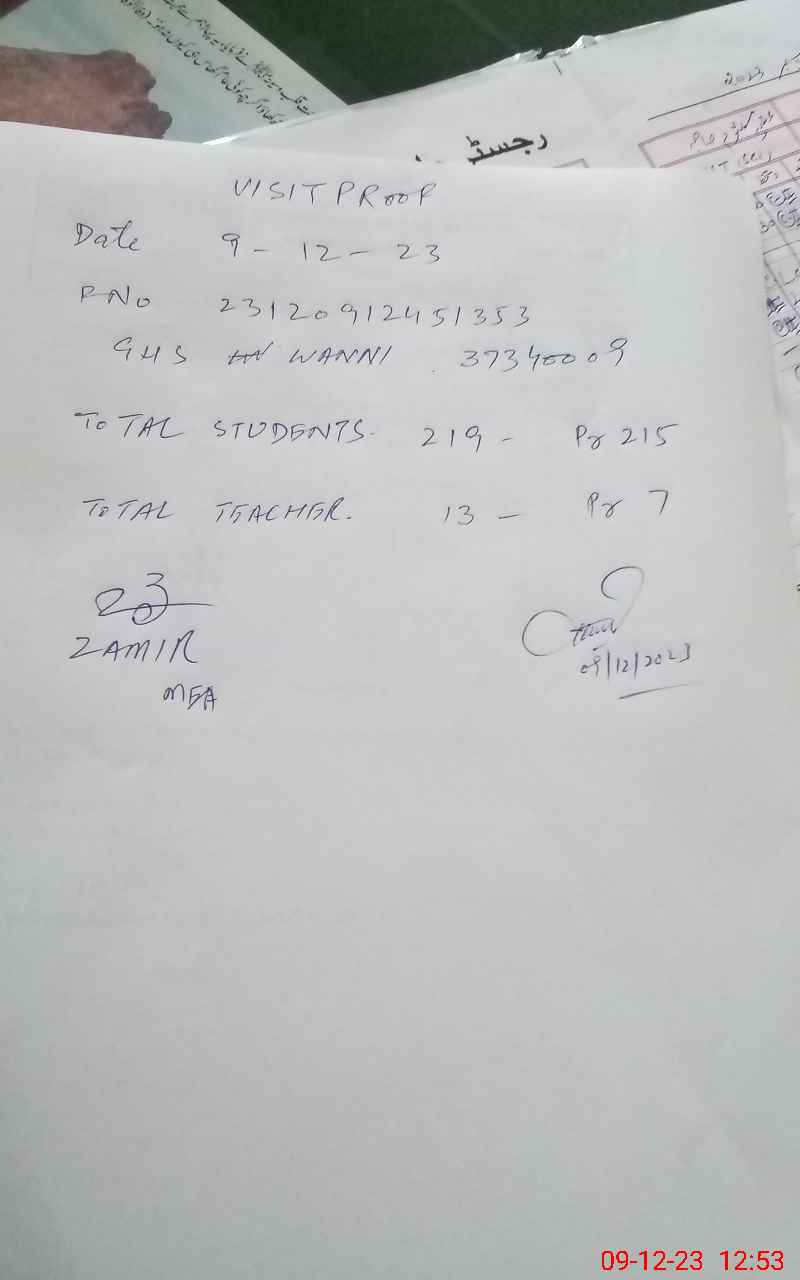 رجسٹر
2023
VISIT PROOF
Date 9 - 12 - 23
RNo 23120912451353
GHS WANNI . 37340009
TOTAL STUDENTS. 219 - Pr 215
TOTAL TEACHER. 13 - Pr 7
ZAMIR
MEA
09/12/2023
09-12-23 12:53